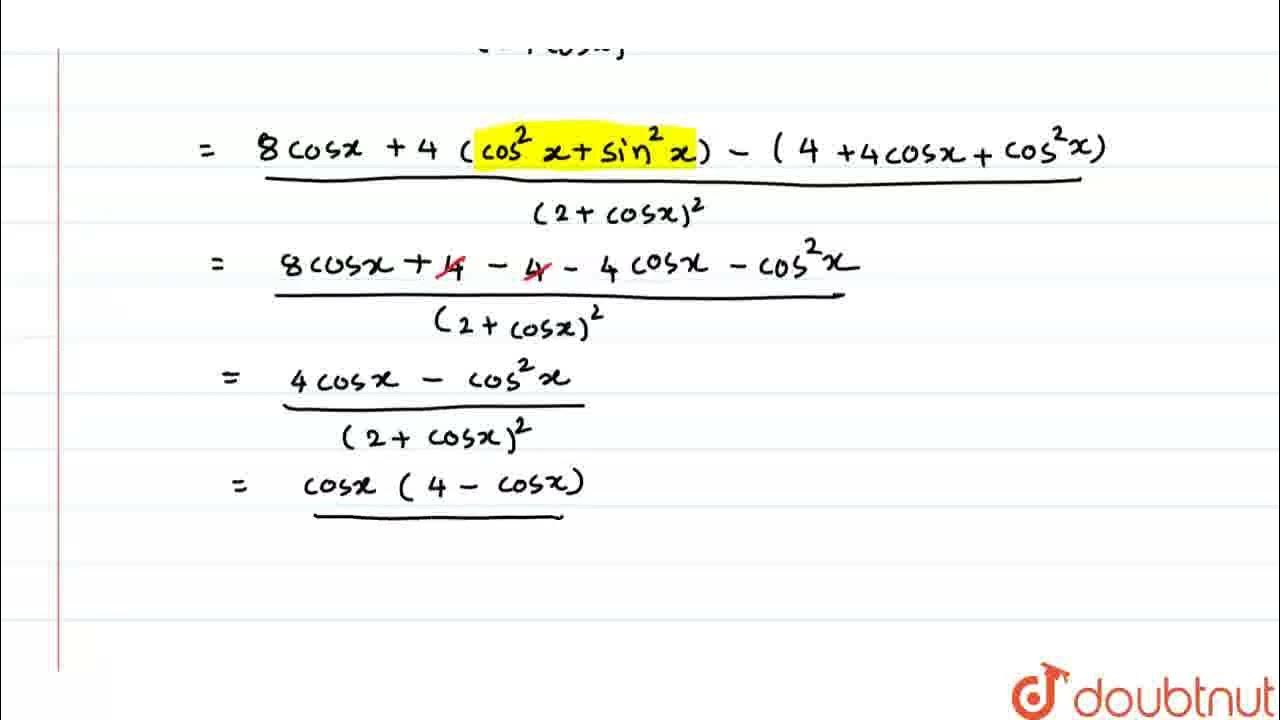 = 8cosx + 4 (cos²x + sin²x) - (4 + 4cosx + cos²x)
(2 + cosx)²
= 8cosx + 4 - 4 - 4cosx - cos²x
(2 + cosx)²
= 4cosx - cos²x
(2 + cosx)²
= cosx (4 - cosx)
doubtnut